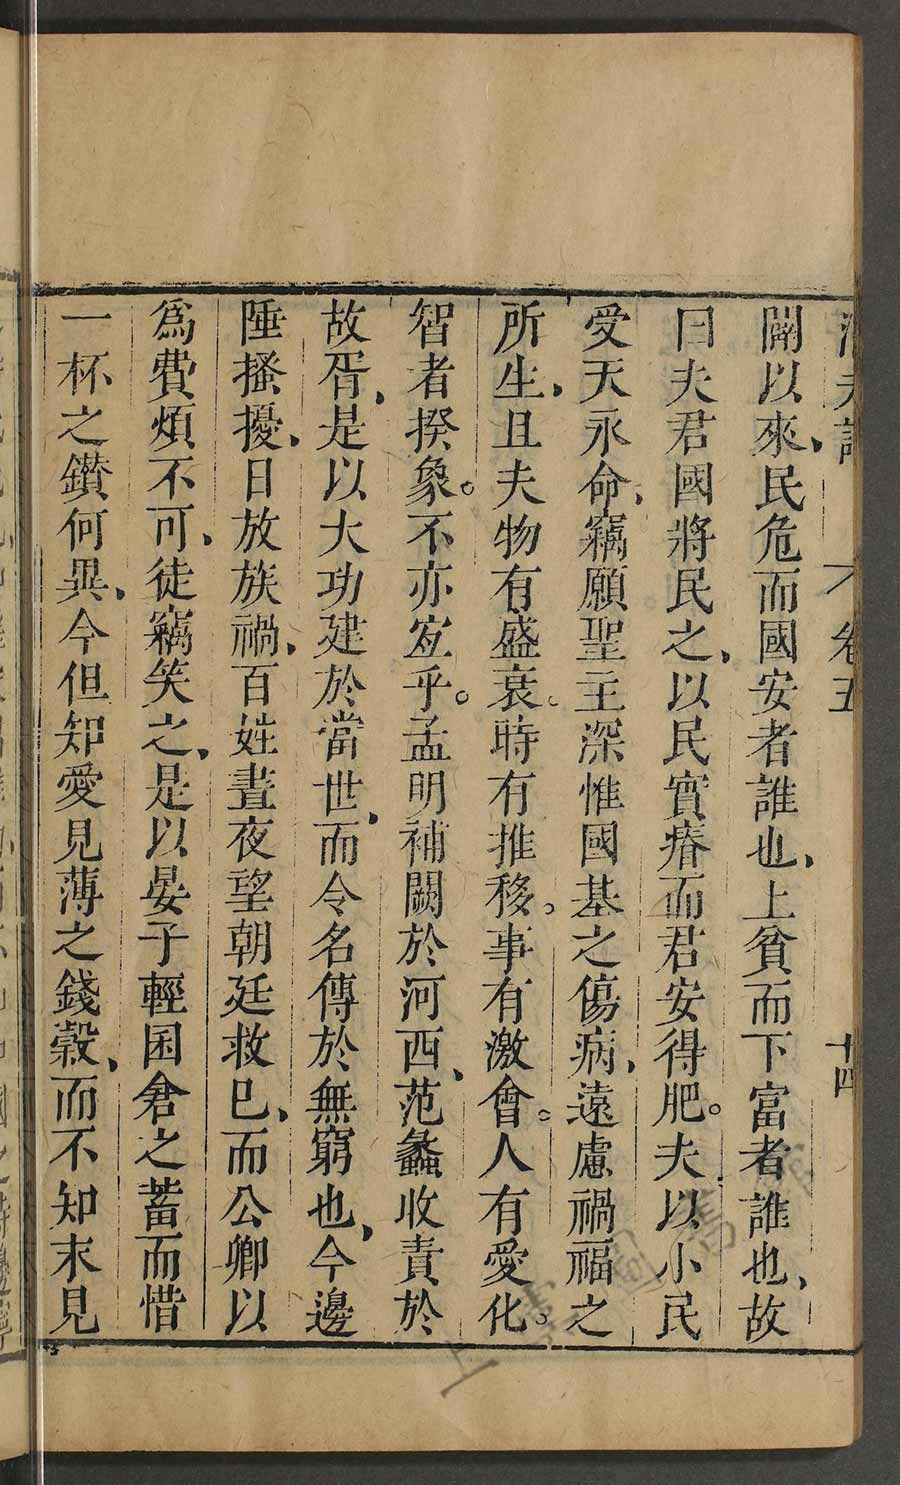 潛夫論 卷五 十四
闢以來、民危而國安者誰也、上貧而下富者誰也、故
曰夫君國將民之、以民實瘠而君安得肥。夫以小民
受天永命、竊願聖主深惟國基之傷病、遠慮禍福之
所生、且夫物有盛衰。時有推移。事有激會。人有愛化。
智者揆象。不亦宐乎。孟明補闕於河西、范蠡收責於
故胥、是以大功建於當世、而令名傳於無窮也、今邊
陲搔擾、日放族禍、百姓晝夜望朝廷救巳、而公卿以
爲費煩不可、徒竊笑之、是以晏子輕囷倉之蓄而惜
一杯之鑚何異、今但知愛見薄之錢穀、而不知末見